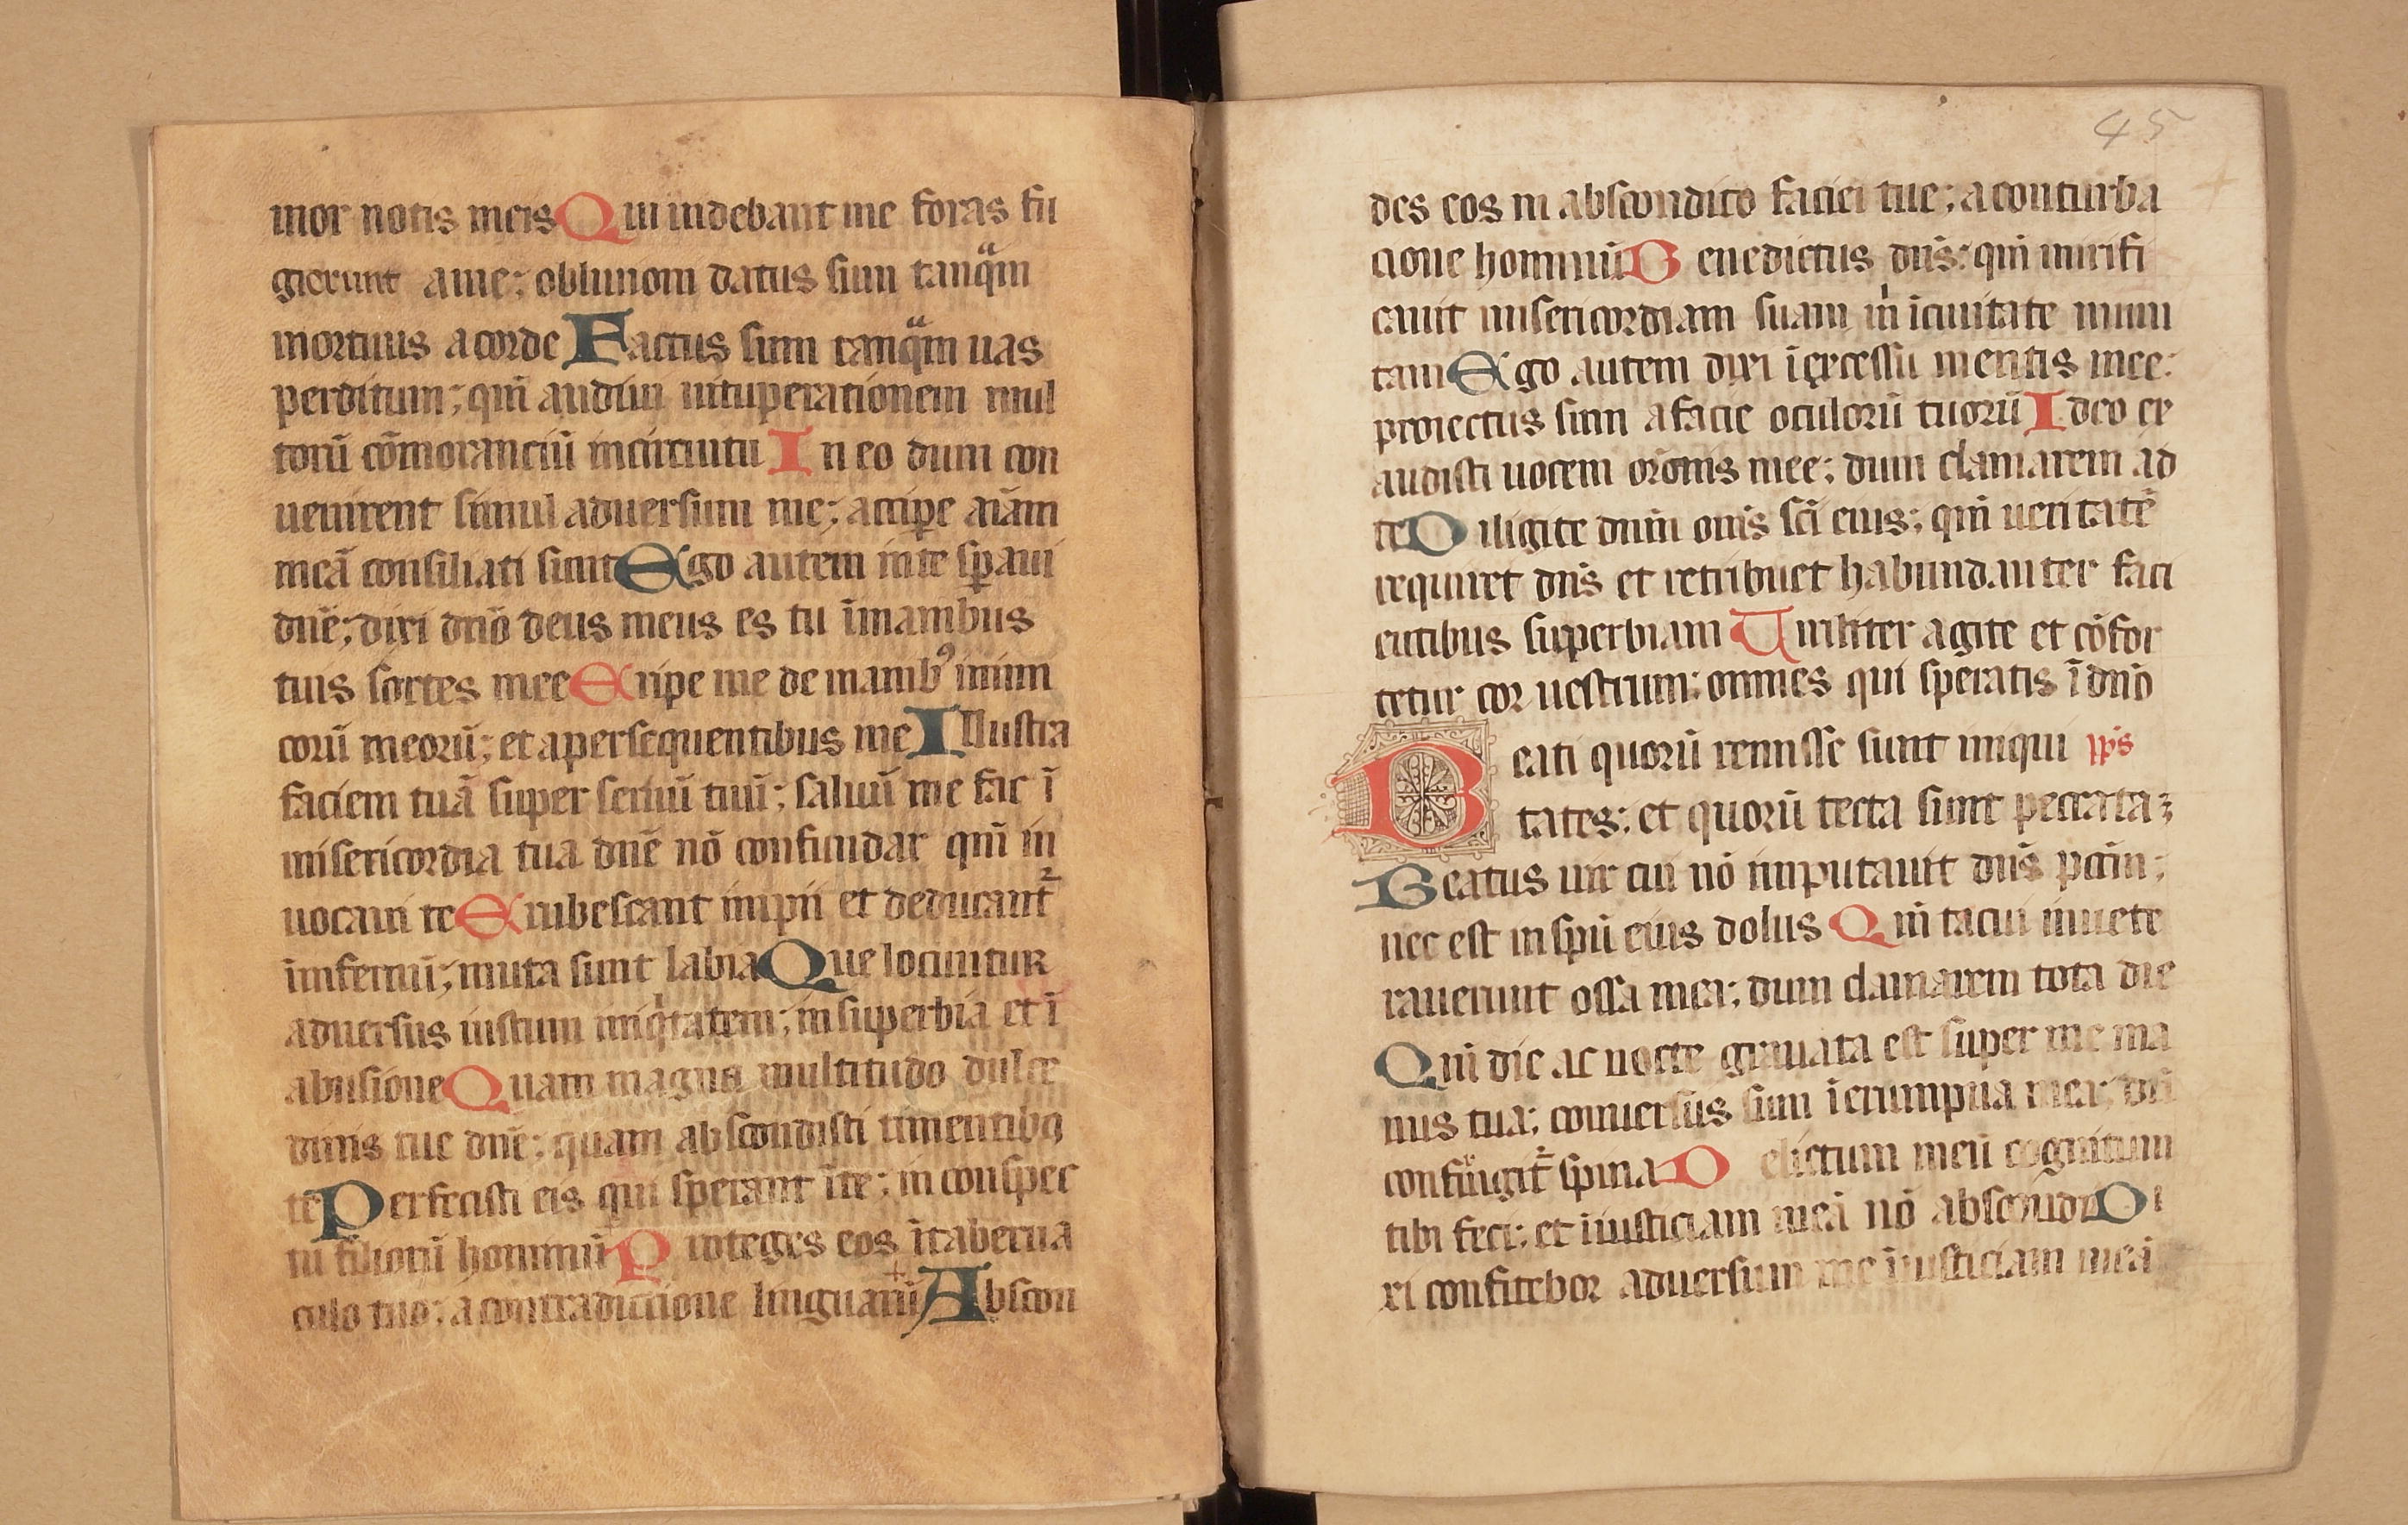 mor notis meis Qui uidebant me foras fu
gierunt a me; obliuioni datus sum tanq̃m
mortuus a corde Factus sum tanq̃m uas
perditum; qm̄ audiui uituperationem mul
torū cōmoranciū in circuitu In eo dum con
uenirent simul aduersum me; accip̱e aīam
meā consiliati sunt Ego autem in te sp̱aui
dn̄e; dixi dn̄o deus meus es tu ī manibus
tuis sortes mee Eripe me de manibꝰ inimi
corū meorū; et a persequentibus me Illustra
faciem tuā super seruū tuū; saluū me fac ī
misericordia tua dn̄e nō confundar qm̄ in
uocaui te Erubescant impii et deducant᷑
imfernū; muta sunt labia Que locuntur
aduersus iustum iniqͥtatem; in superbia et ī
abusione Quam magna multitudo dulce
dinis tue dn̄e; quam abscondisti timentibꝯ
te Perfecisti eis qui sperant ī te; in conspec
tu filiorū hominū Proteges eos ī taberna
culo tuo; a contradiccione linguarū Abscon
45
des eos in abscondito faciei tue; a conturba
cione hominū Benedictus dn̄s; qm̄ mirifi
cauit misericordiam suam mͥ ī ciuitate muni
tam Ego autem dixi ī excessu mentis mee:
proiectus sum a facie oculorū tuorū Ideo ex
audisti uocem orōnis mee; dum clamarem ad
te Diligite dnm̄ om̄s sc̄i eius; qm̄ ueritatē
requiret dn̄s et retribuet habundanter faci
entibus superbiam Uiriliter agite et cōfor
tetur cor uestrum; omnes qui speratis ī dn̄o
Beati quorū remisse sunt iniqui pp̄s
tates; et quorū tecta sunt peccata;
Beatus uir cui nō imputauit dn̄s pccm̄;
nec est in spū eius dolus Qm̄ tacui inuete
rauerunt ossa mea; dum clamarem tota die
Qm̄ die ac nocte grauata est super me ma
nus tua; conuersus sum ī erumpna mea; dū
confungit᷑ spina Delictum meū cognitum
tibi feci; et iniusticiam meā nō abscondi Di
xi confitebor aduersum me iniusticiam meā